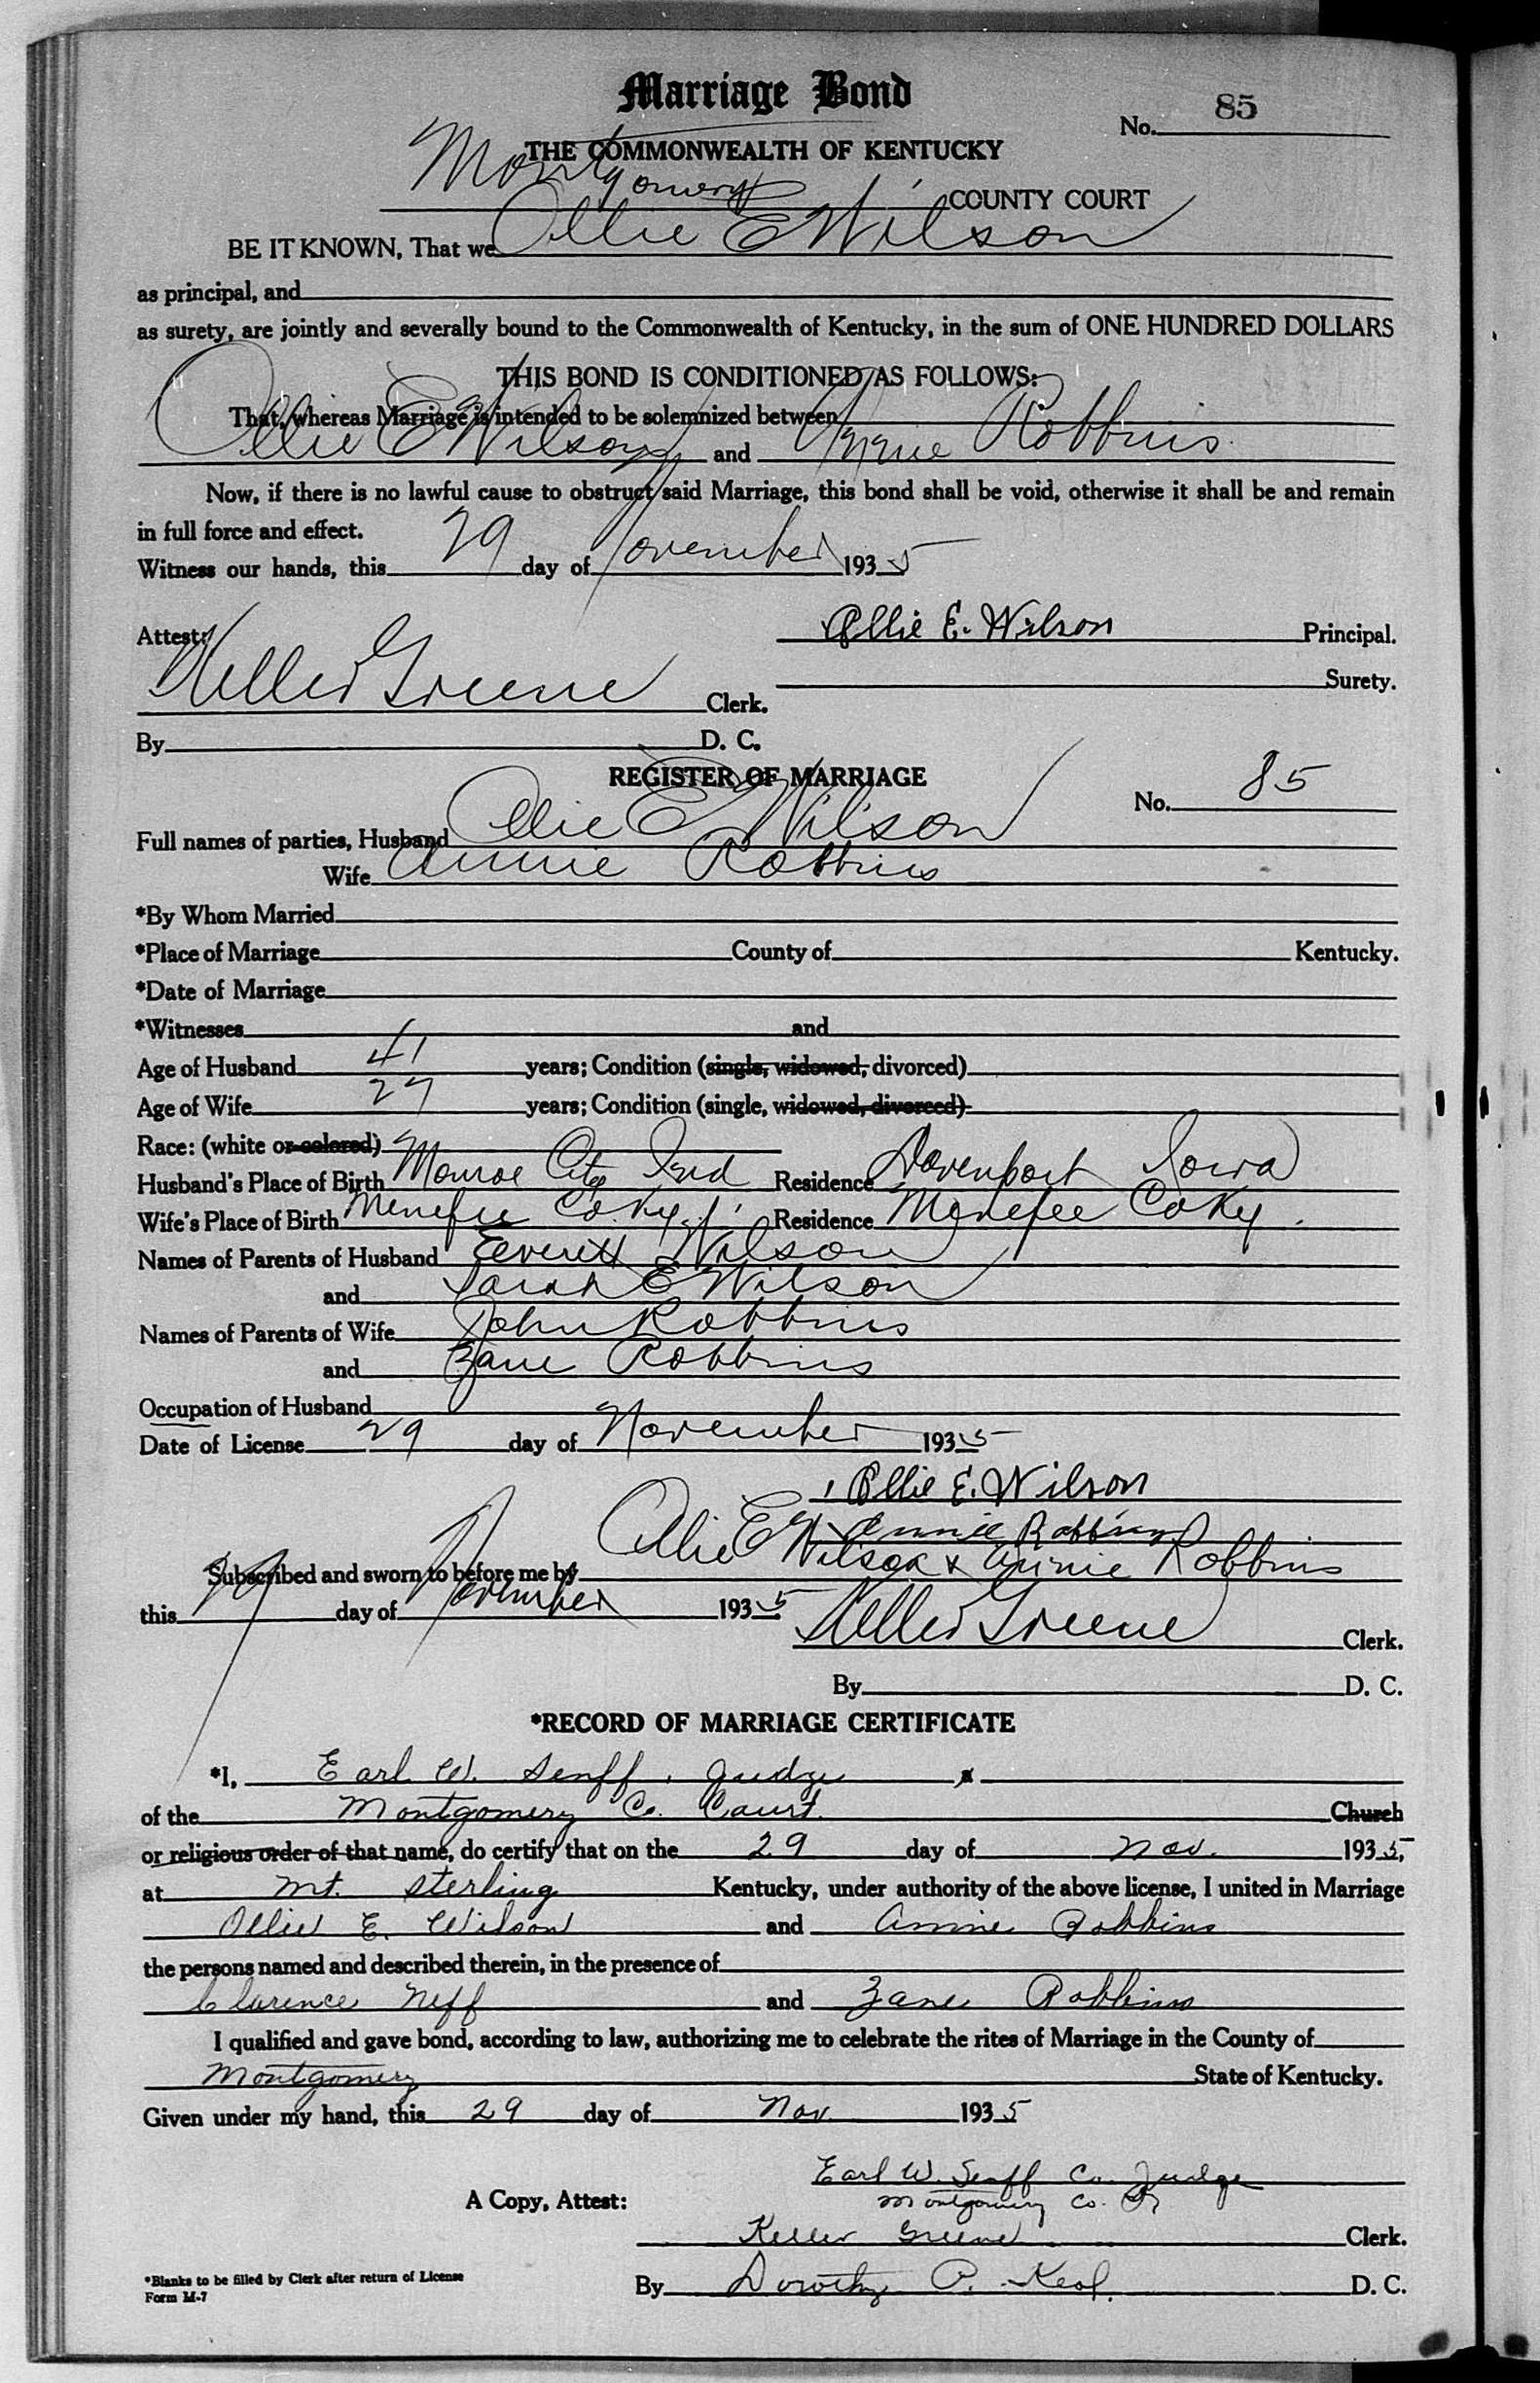 Marriage Bond
No. 85
THE COMMONWEALTH OF KENTUCKY
Montgomery COUNTY COURT
BE IT KNOWN, That we Ollie E Wilson
as principal, and
as surety, are jointly and severally bound to the Commonwealth of Kentucky, in the sum of ONE HUNDRED DOLLARS
THIS BOND IS CONDITIONED AS FOLLOWS:
That, whereas Marriage is intended to be solemnized between
Ollie E Wilson and Annie Robbins
Now, if there is no lawful cause to obstruct said Marriage, this bond shall be void, otherwise it shall be and remain
in full force and effect.
Witness our hands, this 29 day of November 1935
Attest: Ollie E. Wilson Principal.
Surety.
Keller Greene Clerk.
By D. C.
REGISTER OF MARRIAGE
No. 85
Full names of parties, Husband Ollie E Wilson
Wife Annie Robbins
*By Whom Married
*Place of Marriage County of Kentucky.
*Date of Marriage
*Witnesses and
Age of Husband 41 years; Condition (single, widowed, divorced)
Age of Wife 27 years; Condition (single, widowed, divorced)
Race: (white or colored)
Husband's Place of Birth Monroe City Ind Residence Davenport Iowa
Wife's Place of Birth Menefee Co Ky. Residence Menefee Co Ky.
Names of Parents of Husband Everett Wilson
and Sarah E Wilson
Names of Parents of Wife John Robbins
and Zane Robbins
Occupation of Husband
Date of License 29 day of November 1935
Ollie E. Wilson
Annie Robbins
Subscribed and sworn to before me by Ollie E Wilson & Annie Robbins
this 29 day of November 1935
Keller Greene Clerk.
By D. C.
*RECORD OF MARRIAGE CERTIFICATE
*I, Earl W. Senff, Judge
of the Montgomery Co. Court. Church
or religious order of that name, do certify that on the 29 day of Nov. 1935,
at Mt. Sterling Kentucky, under authority of the above license, I united in Marriage
Ollie E. Wilson and Annie Robbins
the persons named and described therein, in the presence of
Clarence Neff and Zane Robbins
I qualified and gave bond, according to law, authorizing me to celebrate the rites of Marriage in the County of
Montgomery State of Kentucky.
Given under my hand, this 29 day of Nov. 1935
Earl W. Senff Co. Judge
Montgomery Co.
A Copy, Attest:
Keller Greene Clerk.
*Blanks to be filled by Clerk after return of License
Form M-7
By Dorothy P. D. C.